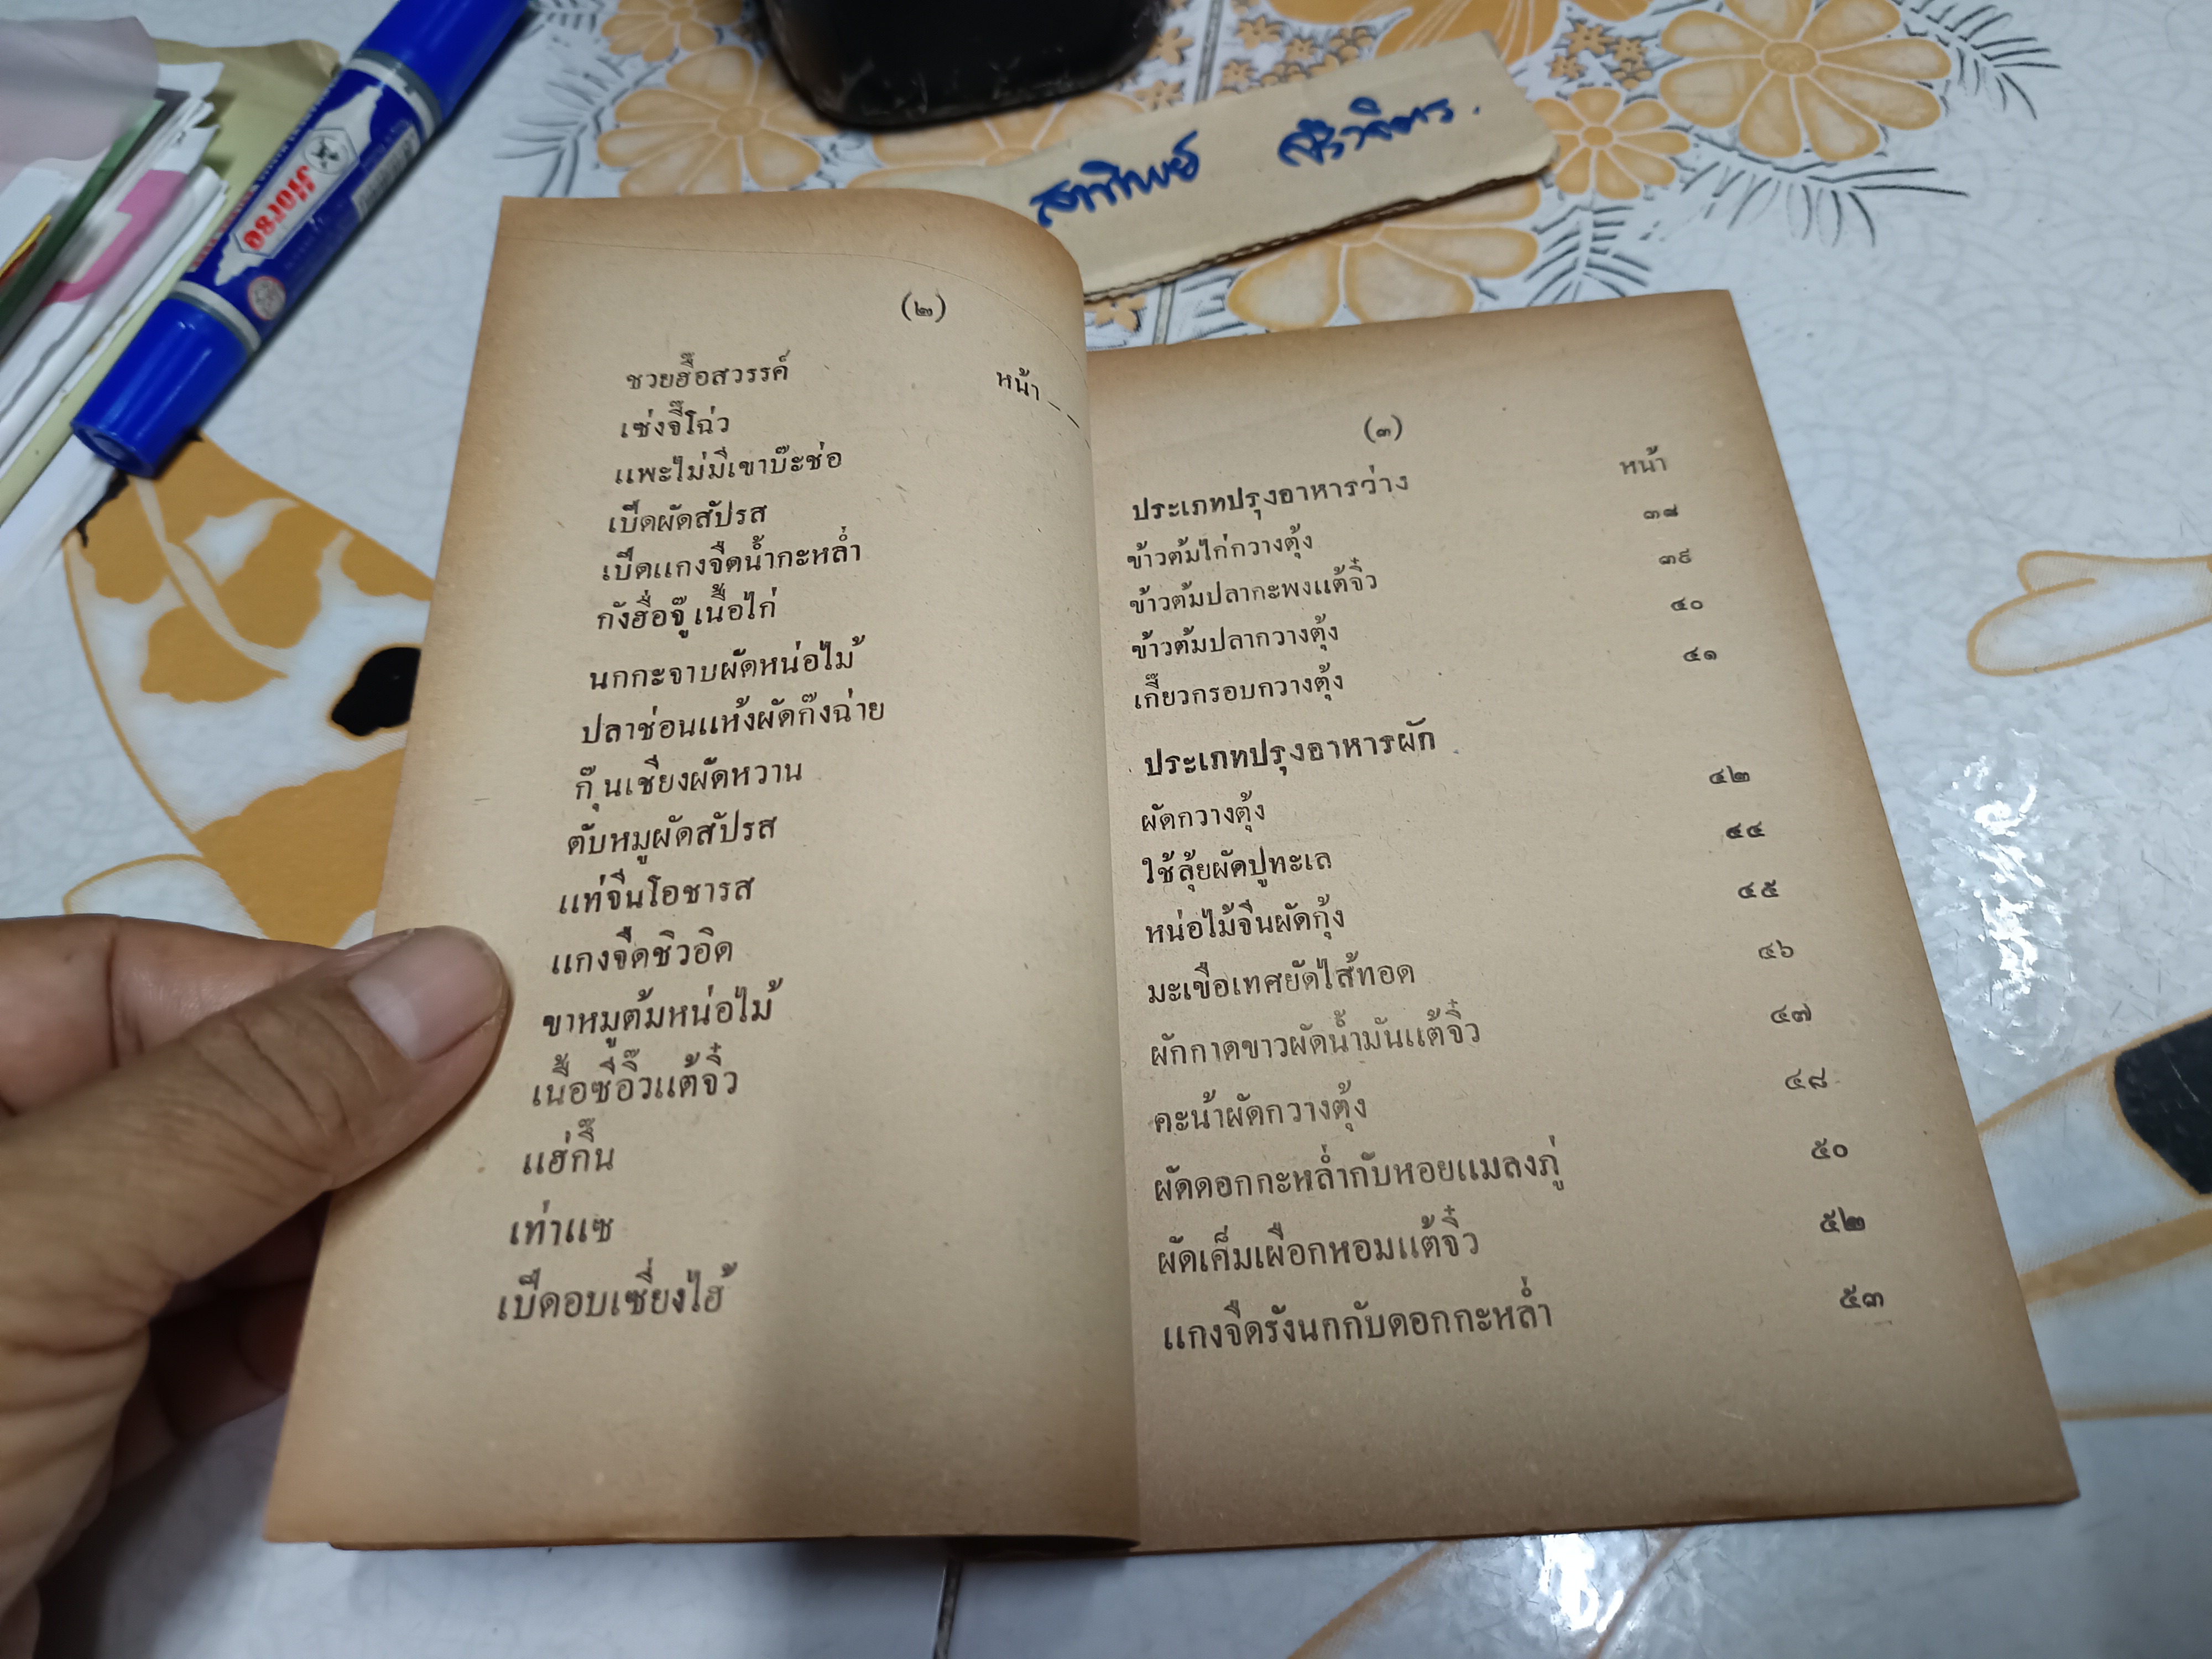 Horse
สาทิพย์
(๒)
หน้า
ชวยฮื้อสวรรค์
เซ่งจี๊โฉ่ว
แพะไม่มีเขาบ๊ะช่อ
เป็ดผัดสัปรส
เป็ดแกงจืดน้ำกะหล่ำ
กังฮื่อจู๊เนื้อไก่
นกกะจาบผัดหน่อไม้
ปลาช่อนแห้งผัดก๊งฉ่าย
กุ๊นเชียงผัดหวาน
ตับหมูผัดสัปรส
แท่จีนโอชารส
แกงจืดชิวอิด
ขาหมูต้มหน่อไม้
เนื้อซีอิ๊วแต้จิ๋ว
แฮ่กึ๊น
เท่าแซ
เป็ดอบเซี่ยงไฮ้
(๓)
หน้า
ประเภทปรุงอาหารว่าง
ข้าวต้มไก่กวางตุ้ง ๓๘
ข้าวต้มปลากะพงแต้จิ๋ว ๓๙
ข้าวต้มปลากวางตุ้ง ๔๐
เกี๊ยวกรอบกวางตุ้ง ๔๑
ประเภทปรุงอาหารผัก
ผัดกวางตุ้ง ๔๒
ใช้ลุ้ยผัดปูทะเล ๔๔
หน่อไม้จีนผัดกุ้ง ๔๕
มะเขือเทศยัดไส้ทอด ๔๖
ผักกาดขาวผัดน้ำมันแต้จิ๋ว ๔๗
คะน้าผัดกวางตุ้ง ๔๘
ผัดดอกกะหล่ำกับหอยแมลงภู่ ๕๐
ผัดเค็มเผือกหอมแต้จิ๋ว ๕๒
แกงจืดรังนกกับดอกกะหล่ำ ๕๓